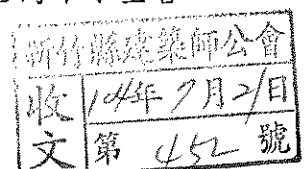 新竹縣建築師公會
收文
104年7月21日
第 452 號